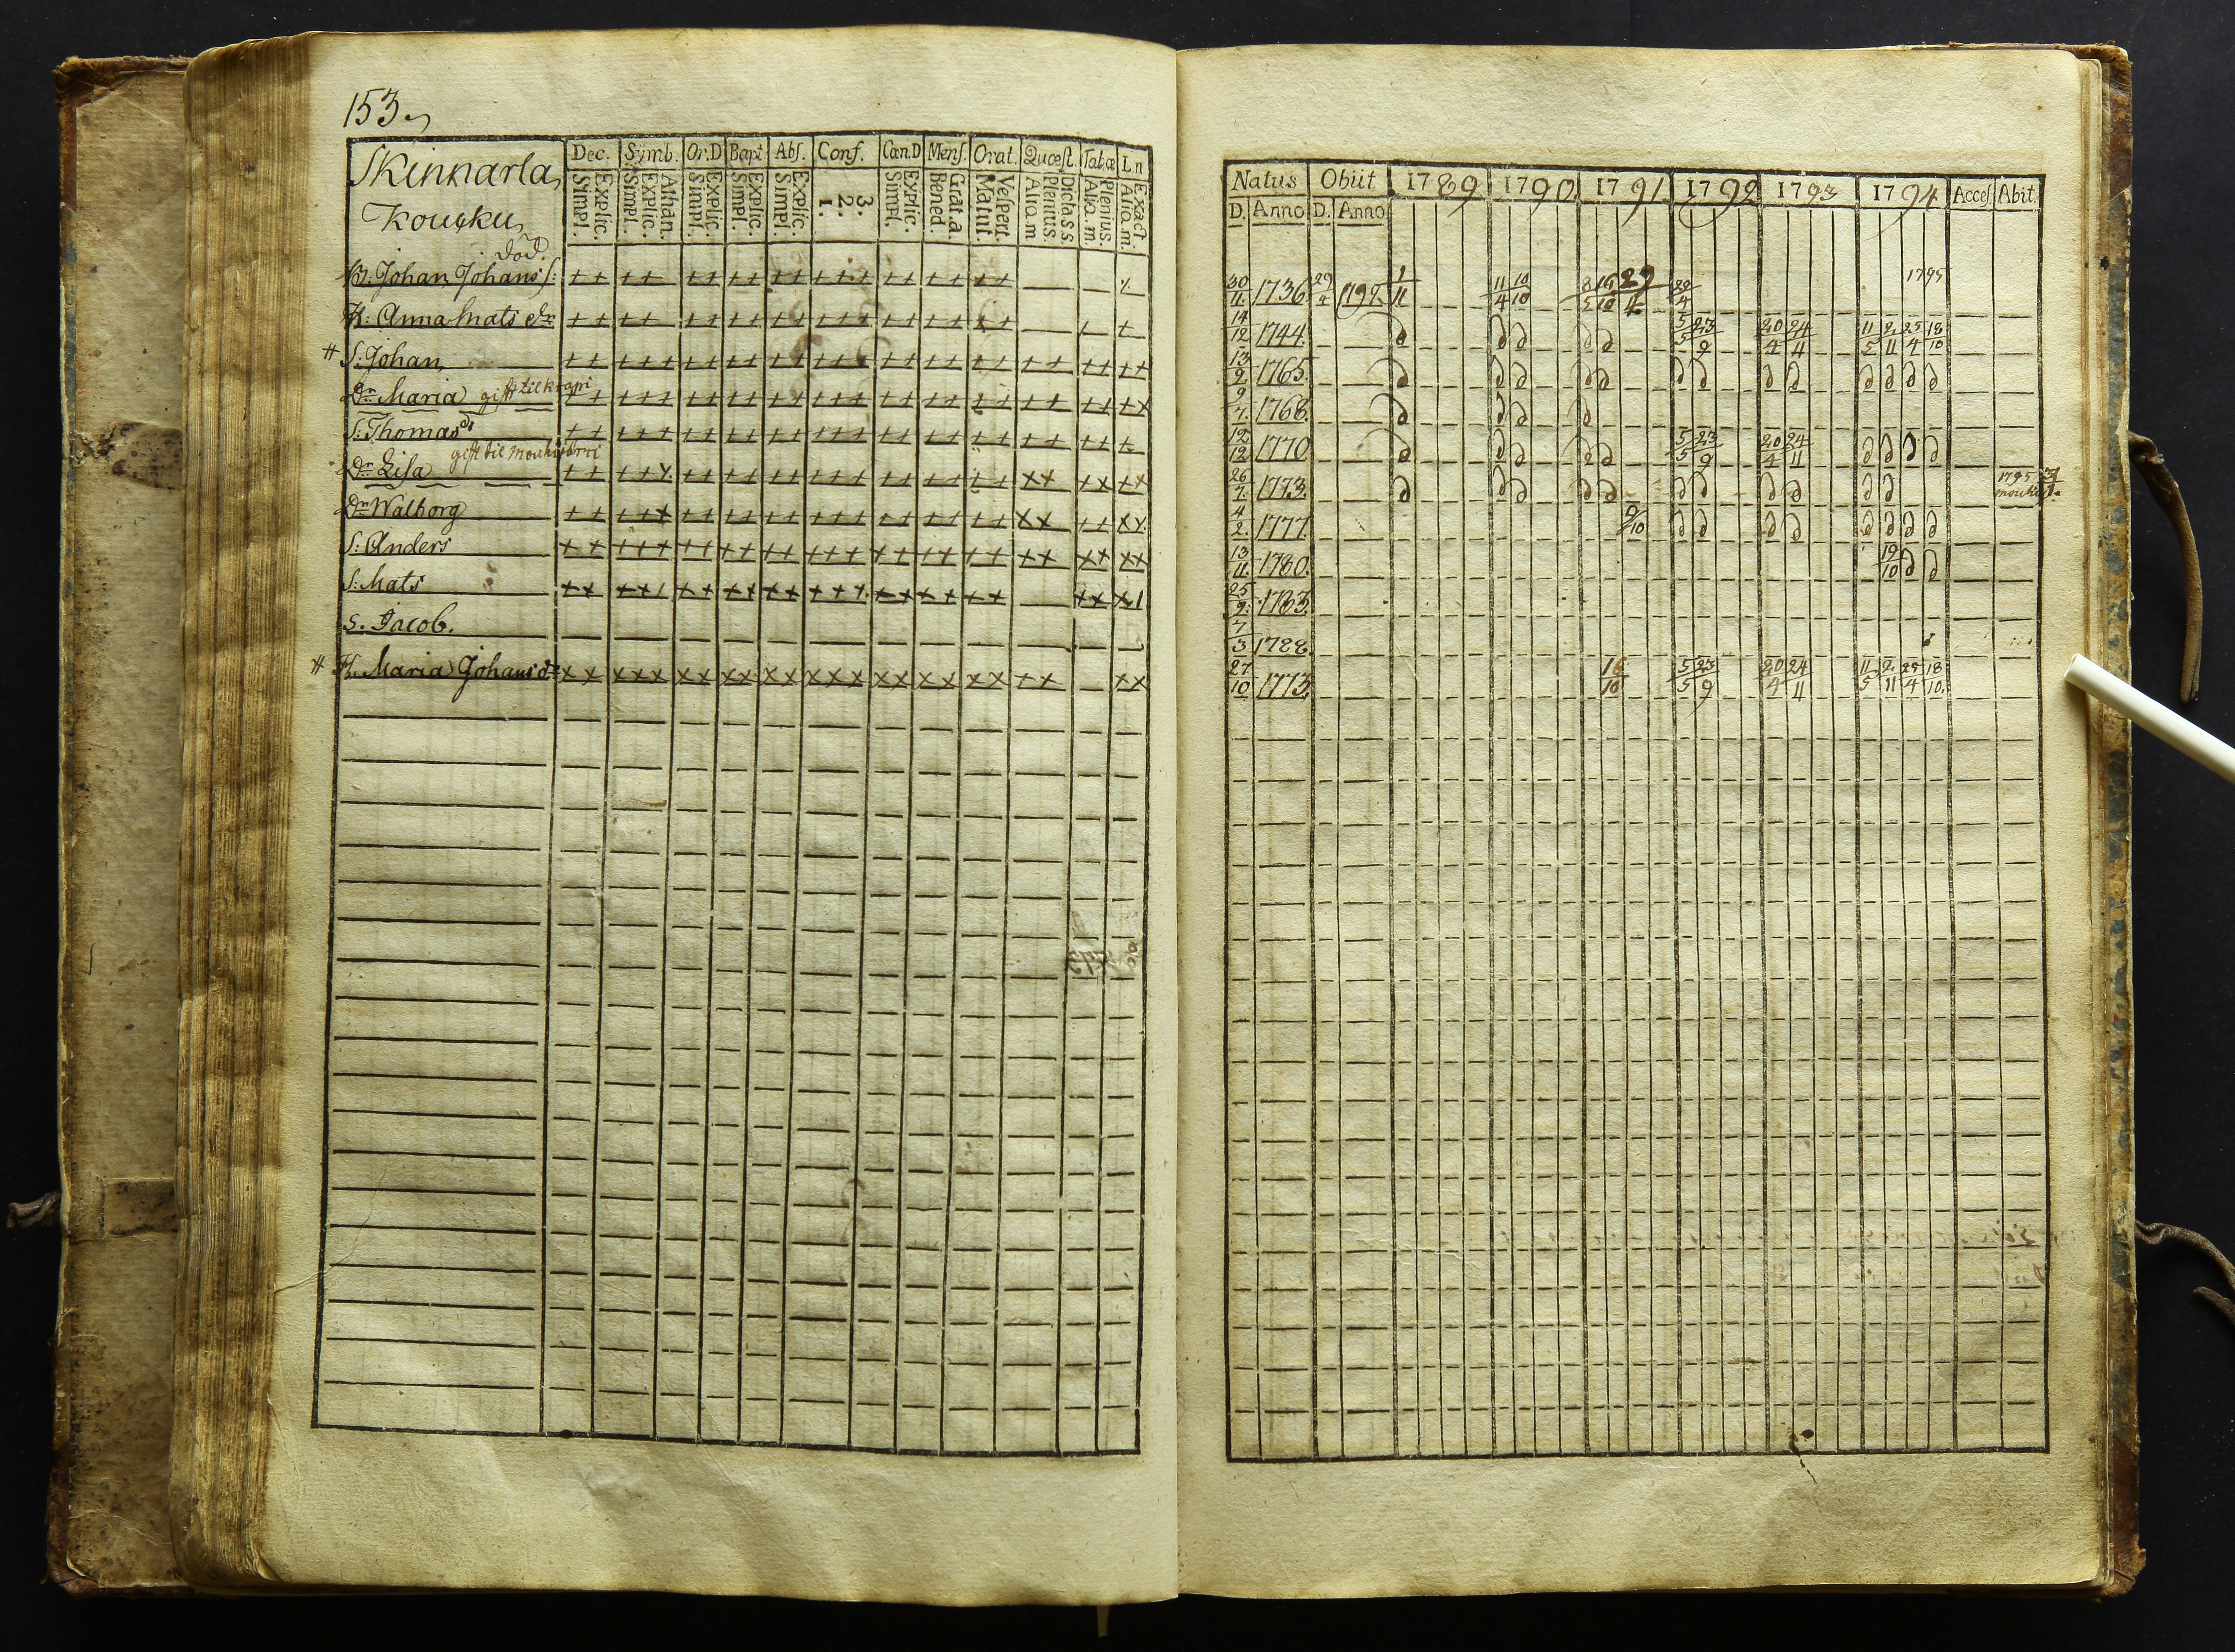 153.
Skinnarla,
Koucku,
Dec. Symb. Or.D Bapt Abs. Conf. Cœn.D Mens. Orat. Quœst. Tabœ Ln
Explic. Simpl. Athan. Explic. Simpl. Explic. Simpl. Explic. Simpl. Explic. Simpl. 3. 2. 1. Explic. Simpl. Grat. a. Bened. Vespert. Matut. Dicta.S.S. Plenius. Alio. m Plenius. Alio. m. Exact. Alio. m.
död.
B: Johan Johans S:
H: Anna Mats dr
# S: Johan
Dr Maria gift til
S: Thomas
gift til
Dr Lisa
Dr Walborg
S: Anders
S: Mats
S. Jacob.
# H. Maria Johans dr
Natus Obiit 1789 1790 1791 1792 1793 1794 Acces. Abit.
D. Anno D. Anno
30/11 1736 29/4 1792 1/11 11/4 10/10 29/4 1795
14/12 1744 5/5 23/9 20/4 24/11 11/5 2/11 25/4 18/10
13/2 1765
9/7 1768
12/12 1770 5/5 23/9 20/4 24/11
26/7 1773 1795
4/2 1777 9/10
13/11 1780 19/10
25/9 1783
7/3 1788
27/10 1773 16/10 5/5 23/9 20/4 24/11 11/5 2/11 25/4 18/10